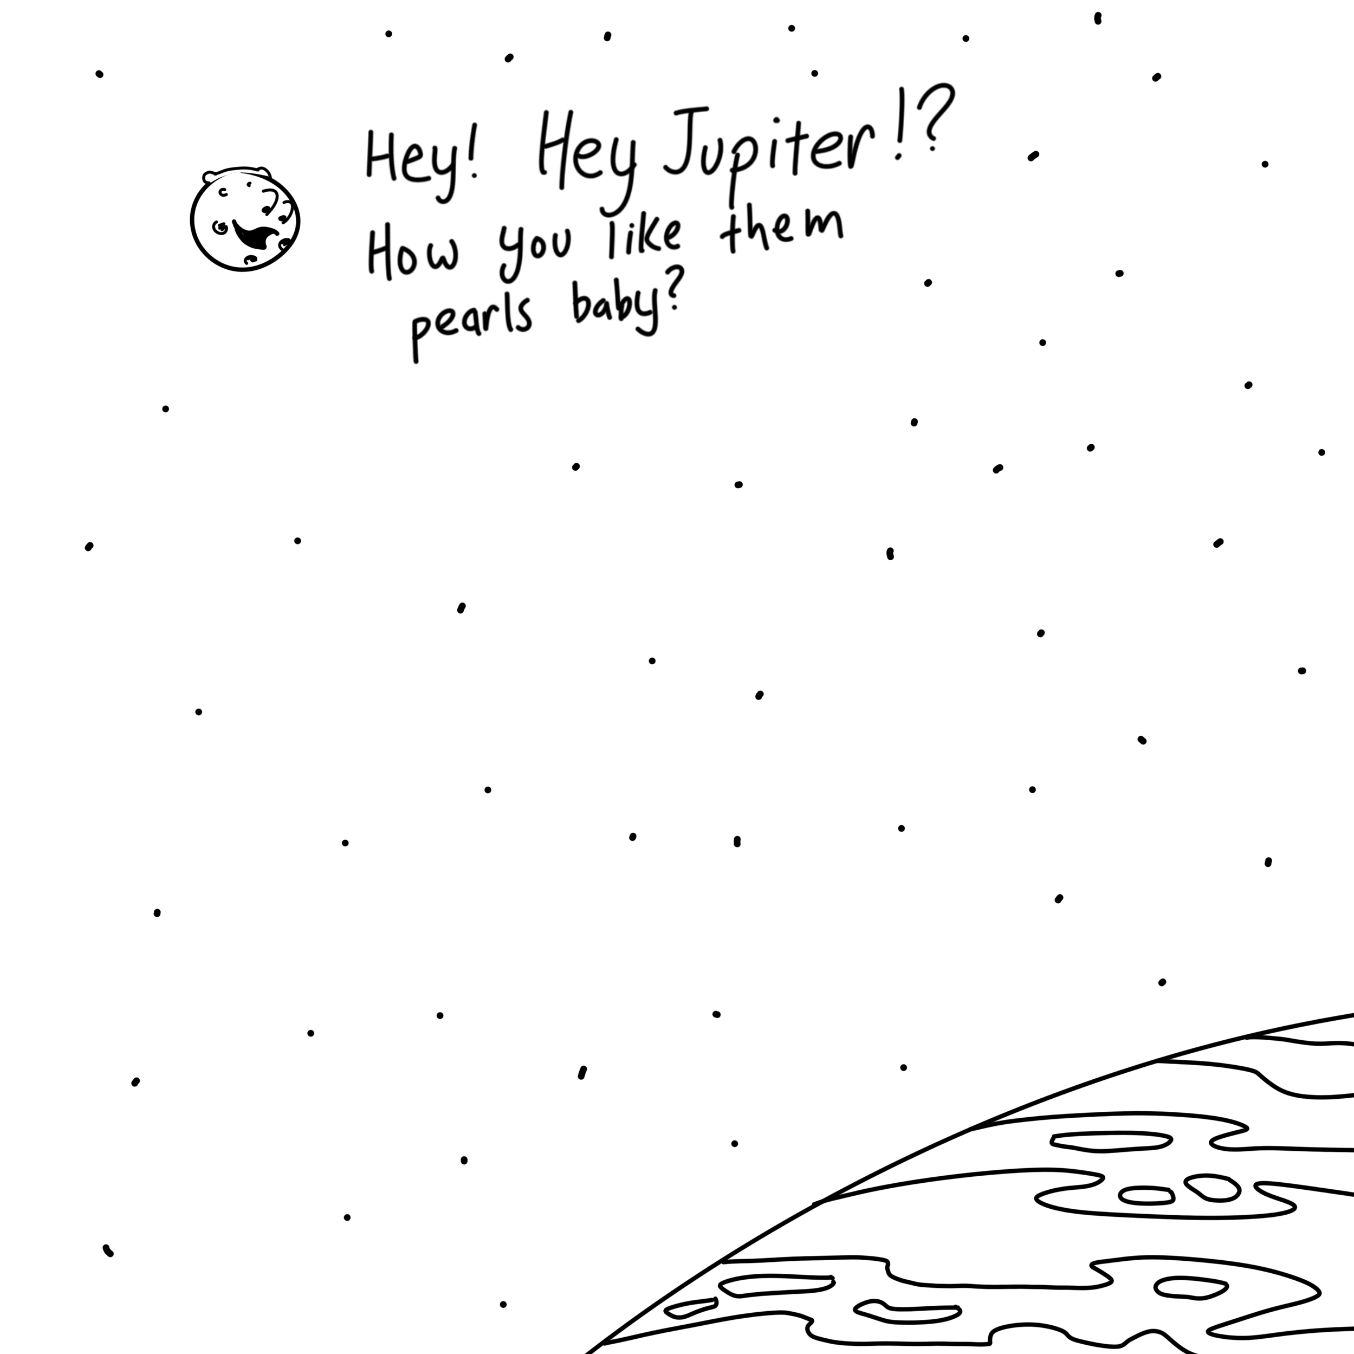 Hey! Hey Jupiter!?
How you like them
pearls baby?